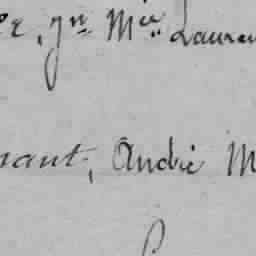 Jn Mce Lauren
sant, André M